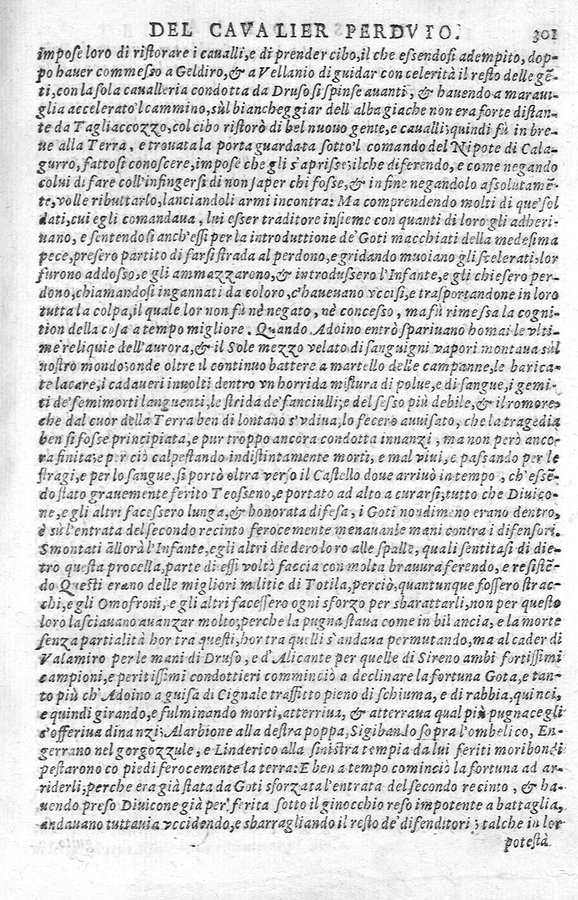 DEL CAVALIER PERDVTO. 301
impose loro di ristorare i cavalli, e di prender cibo, il che essendosi adempito, dop-
po hauer commesso a Geldiro, & a Vellanio di guidar con celerità il resto delle gẽ-
ti, con la sola cavalleria condotta da Druso si spinse auanti, & hauendo a maraui-
glia accelerato'l cammino, sùl biancheggiar dell alba giache non era forte distan-
te da Tagliaccozzo, col cibo ristorò di bel nuouo gente, e cavalli; quindi fù in bre-
ue alla Terra, e trouata la porta guardata sotto'l comando del Nipote di Cala-
gurro, fattosi conoscere, impose che gli s'aprisse; ilche diferendo, e come negando
colui di fare coll'infingersi di non saper chi fosse, & in fine negandolo assolutamẽ-
te, volle ributtarlo, lanciandoli armi incontra: Ma comprendendo molti di que' sol
dati, cui egli comandaua, lui esser traditore insieme con quanti di loro gli adheri-
uano, e sentendosi anch'essi per la introduttione de' Goti macchiati della medesima
pece, presero partito di farsi strada al perdono, e gridando muoiano gli scelerati; lor
furono addosso, e gli ammazzarono, & introdussero l'Infante, e gli chiesero per-
dono, chiamandosi ingannati da coloro, c'hauenano vccisi, e trasportandone in loro
tutta la colpa, il quale lor non fù nè negato, nè concesso, ma fù rimessa la cogni-
tion della cosa a tempo migliore. Quando Adoino entrò sparivano homai le vlti-
me reliquie dell'aurora, & il Sole mezzo velato di sanguigni vapori montaua sùl
nostro mondo; onde oltre il continuo battere a martello delle campanne, le barica-
te lacare, i cadaueri inuolti dentro vn horrida mistura di polue, e di sangue, i gemi-
ti de' semimorti languenti, le strida de' fanciulli; e del sesso più debile, & il romore
che dal cuor della Terra ben di lontano s'vdiua, lo fecero auuisato, che la tragedia
ben si fosse principiata, e pur troppo ancora condotta innanzi, ma non però anco-
ra finita; e per ciò calpestando indistintamente morti, e mal viui, e passando per le
stragi, e per lo sangue. si portò oltra verso il Castello doue arriuò in tempo, ch'essẽ-
do stato grauemente ferito Teosseno, e portato ad alto a curarsi, tutto che Diuico-
ne, e gli altri facessero lunga, & honorata difesa, i Goti nondimeno erano dentro,
e sù l'entrata del secondo recinto ferocemente menauan le mani contra i difensori.
Smontati allorà l'Infante, e gli altri diedero loro alle spalle, quali sentitasi di die-
tro questa procella, parte di essi voltò faccia con molta brauura ferendo, e resistẽ-
do Questi erano delle migliori militie di Totila, perciò, quantunque fossero strac-
chi, e gli Omofroni, e gli altri facessero ogni sforzo per sbarattarli, non per questo
loro lasciauano auanzar molto; perche la pugna staua come in bilancia, e la morte
senza partialità hor tra questi, hor tra quelli s'andaua permutando, ma al cader di
Valamiro per le mani di Druso, e d'Alicante per quelle di Sireno ambi fortissimi
campioni, e peritissimi condottieri comminciò a declinare la fortuna Gota, e tan-
to più ch'Adoino a guisa di Cignale traffitto pieno di schiuma, e di rabbia, quinci,
e quindi girando, e fulminando morti, atterriua, & atterraua qual più pugnace gli
s'offeriua dinanzi; Alarbione alla destra poppa, Sigibando sopra l'ombelico, En-
gerrano nel gorgozzule, e Linderico alla sinistra tempia da lui feriti moribondi
pestarono co piedi ferocemente la terra: E ben a tempo cominciò la fortuna ad ar-
riderli, perche era già stata da Goti sforzata l'entrata del secondo recinto, & ha-
uendo preso Diuicone già per ferita sotto il ginocchio reso impotente a battaglia,
andauano tuttauia vccidendo, e sbarragliando il resto de' difenditori; talche in lor
potestà